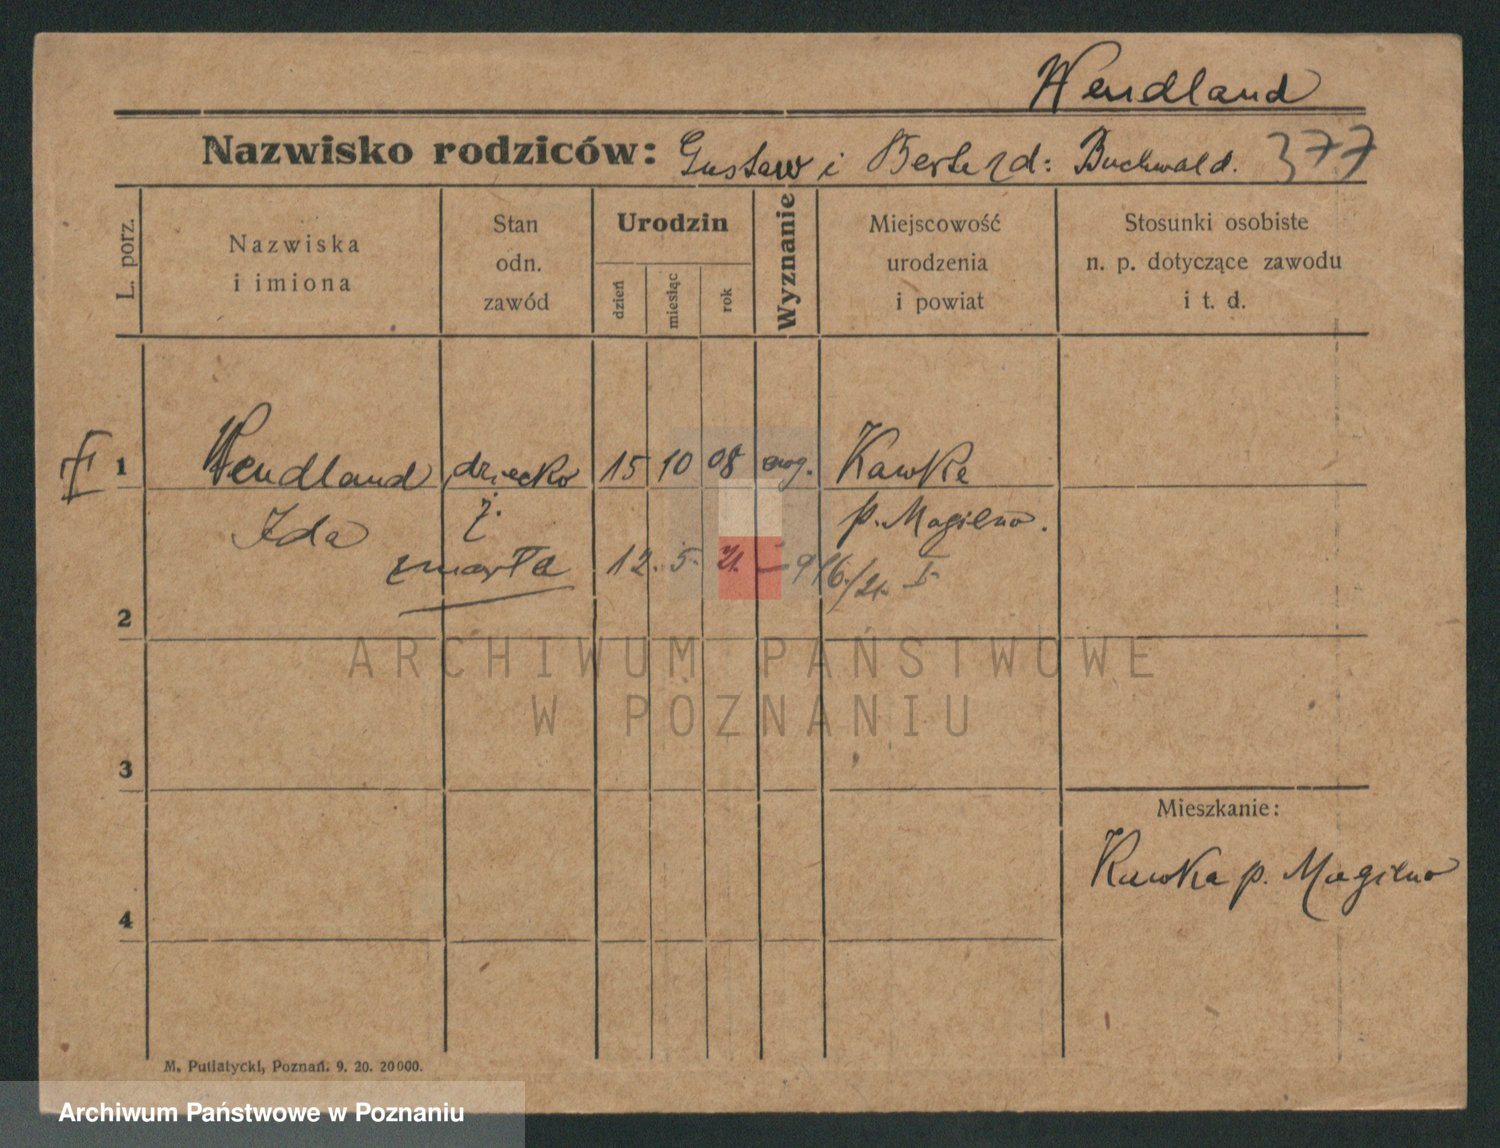 Wendland
Nazwisko rodziców: Gustaw i Berta rd: Buchwald. 377
L. porz.
Nazwiska i imiona
Stan odn. zawód
Urodzin
dzień
miesiąc
rok
Wyznanie
Miejscowość urodzenia i powiat
Stosunki osobiste n. p. dotyczące zawodu i t. d.
1 Wendland dziecko 15 10 08 ewg. Kawka
Ida ż. p. Mogilno.
zmarła 12. 5. 21. – 9/6./21. I.
2
3
Mieszkanie:
Kawka p. Mogilno
4
M. Putiatycki, Poznań. 9. 20. 20000.
ARCHIWUM PAŃSTWOWE
W POZNANIU
Archiwum Państwowe w Poznaniu